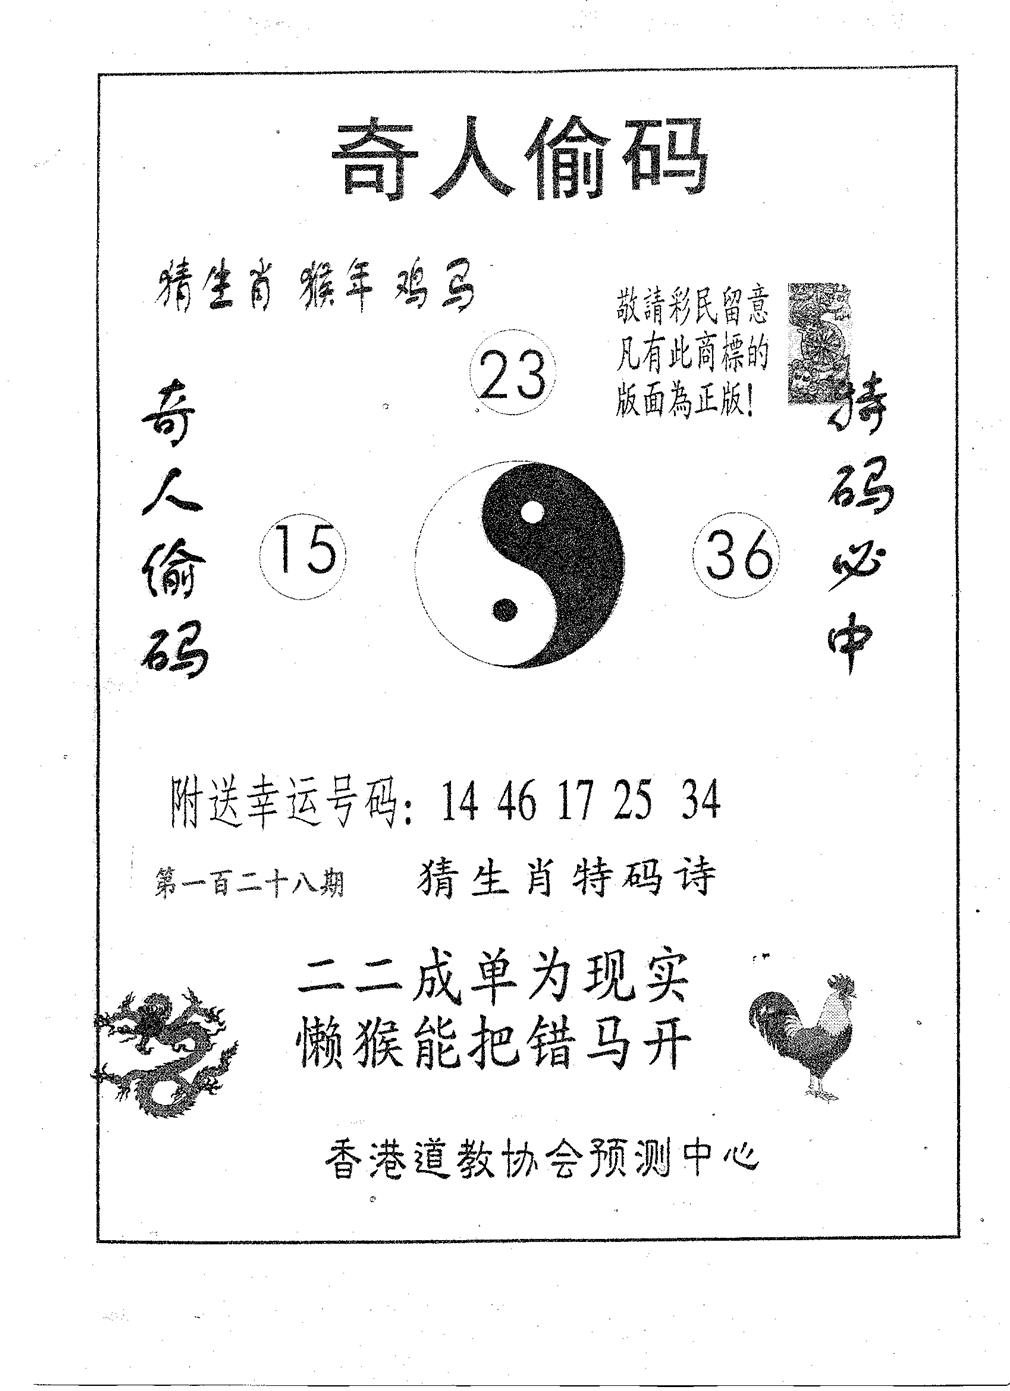 奇人偷码
猜生肖 猴年鸡马
敬請彩民留意
凡有此商標的
版面為正版!
23
奇人偷码
15
36
特码必中
附送幸运号码: 14 46 17 25 34
第一百二十八期 猜生肖特码诗
二二成单为现实
懒猴能把错马开
香港道教协会预测中心